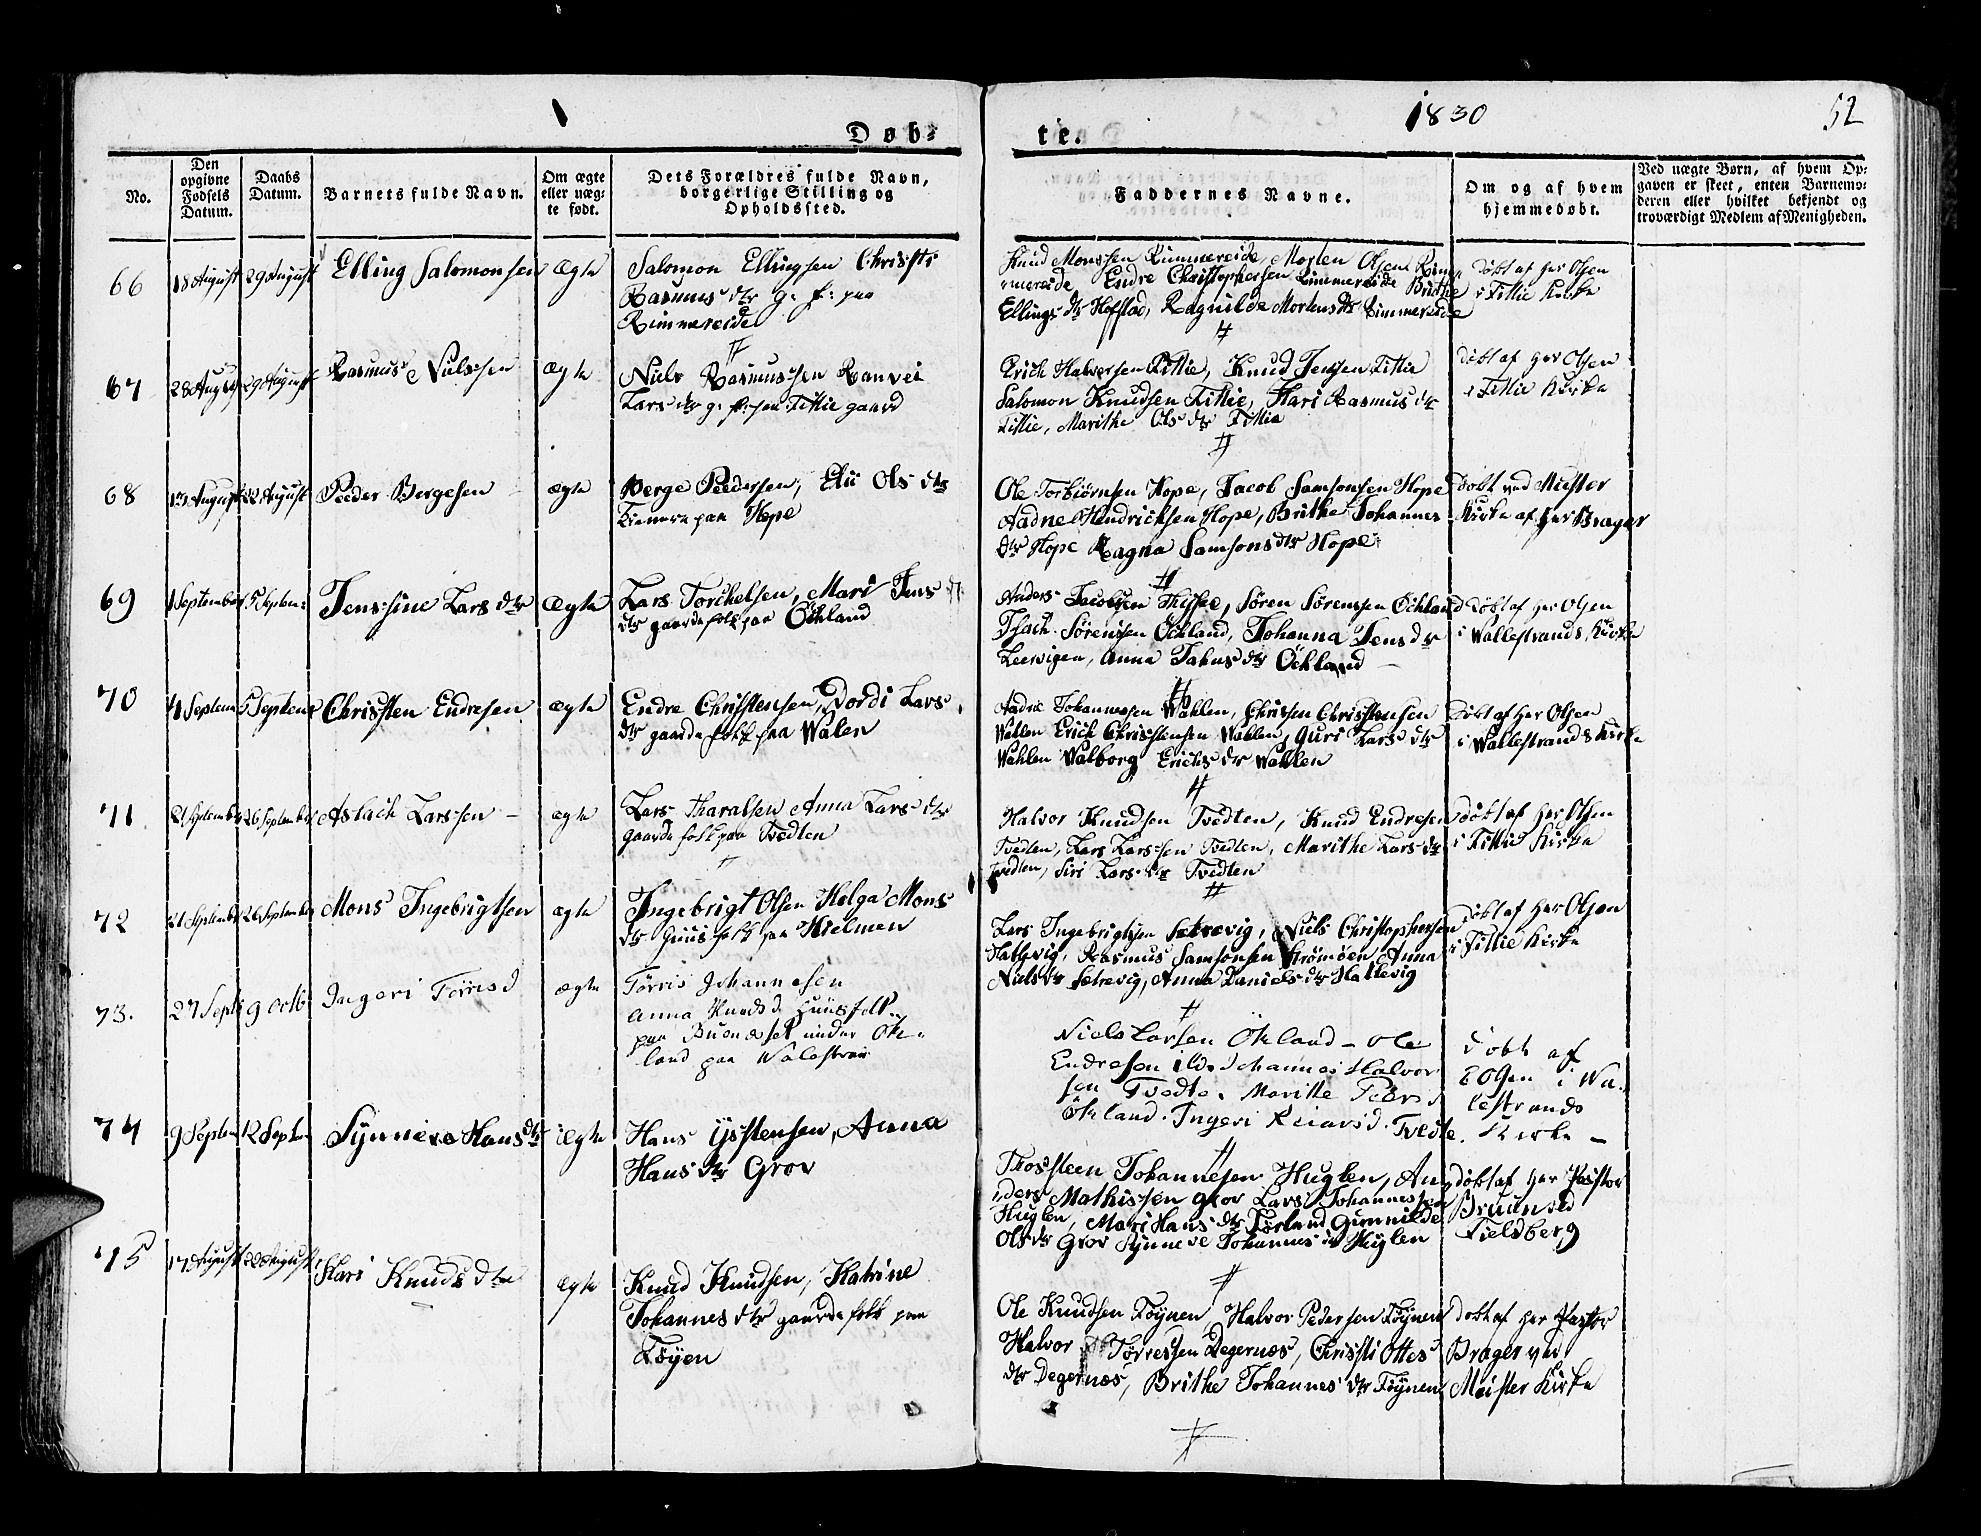 1830
52
Døb-
te.
No.
Den opgivne Fødsels Datum.
Daabs Datum.
Barnets fulde Navn.
Om ægte eller uæg-te født.
Dets Forældres fulde Navn, borgerlige Stilling og Opholdssted.
Faddernes Navne.
Om og af hvem hjemmedøbt.
Ved uægte Børn, af hvem Op-
gaven er skeet, enten Barnemo-
deren eller hvilket bekjendt og
troværdigt Medlem af Menigheden.
66 18 August 29 August Elling Salomonsen Ægte
Salomon Ellingsen Christi
Rasmus dtr g: f: paa
Rimmereide
Knud Monssen Rimmereide, Morten Olsen Rim-
mereide Endre Christophersen Rimmereide Brithe
Ellings dtr Hofstad, Ragnilde Mortens dtr Rimmereide
Døbt af Her Olsen
i Fittie Kirke
67 28 August 29 August Rasmus Nielssen Ægte
Niels Rasmussen Ranvei
Lars dtr g: f: paa Fittie gaard
Erich Halversen Fittie, Knud Jenssen Fittie
Salomon Knudsen Fittie, Kari Rasmus dtr
Fittie, Marithe Ols dtr Fittie
Døbt af Her Olsen
i Fittie Kirke
68 August 22 August Peder Bergesen ægte
Berge Pedersen, Eli Ols dtr
paa Hope
Ole Torbiørnsen Hope, Jacob Samsonsen Hope
Aadne Hendricksen Hope, Brithe Johannes
dtr Hope Ragna Samsons dtr Hope
Døbt ved Møster
Kirke af Her Brager
69 1 September 5 Septem: Jenssine Lars dtr Ægte
Lars Torchelsen, Mari Jens
dtr gaardefolk paa Öchland
Anders Jacobsen, Søren Sørenssen Öchland
Isach Sørenssen Öchland, Johanna Jens dtr
Leervigen, Anna dtr Öchland
Døbt af Her Olsen
i Wallestrands Kirke
70 Septem 5 Septem Christen Endresen ægte
Endre Christensen, Dordi Lars
dtr gaardefolk paa Walen
Aadne Johannessen Wahlen, Christen Christensen
Wahlen Erich Christensen Wahlen, Guri Lars dtr
Wahlen Walborg Erichs dtr Wahlen
Døbt af Her Olsen
i Wallestrands Kirke
71 21 September 26 September Aslach Larssen ægte
Lars Haralsen Anna Lars dtr
gaardefolk paa Tvedten
Halvor Knudsen Tvedten, Knud Endresen
Tvedten, Lars Larssen Tvedten, Marithe Lars dtr
Tvedten, Siri Lars dtr Tvedten
døbt af Her Olsen
i Fittie Kirke
72 21 September 26 September Mons Ingebrigtsen ægte
Ingebrigt Olsen Helga Mons
dtr Huusfolk paa Hielmen
Lars Ingebrigtsen Setrevig, Niels Christophersen
Hattevig, Rasmus Samsonsen Strømøen Anna
Niels dtr Setrevig, Anna Daniels dtr Hattevig
døbt af Her Olsen
i Fittie Kirke
73. 27 Septb 9 Octb Ingeri Tørrisd ægte
Tørris Johannesen
Anna Knudsd Huusfolk
paa under Øk-
land paa Walestran
Niels Larsen Økland - Ole
Endresen Johannes Halvor
sen Tvedte. Maritte Pedersd
Økland. Ingeri Reiarsd. Tvedte.
Døbt af
E Olsen i Wa-
lestrands
Kirke -
74 9 Septem 12 Septem Synneve Hans dtr Ægte
Hans Ystensen, Anna
Hans dtr Grov
Trossteen Johannesen Huglen, An-
ders Mathissen Grov Lars Johannessen
Huglen, Mari Hans dtr Tørland Gunnilde
Ols dtr Grov Synneve Johannes dtr Huglen
døbt af Her Pastor
Bruun ved
Fieldberg
75 17 August August Kari Knuds dtr ægte
Knud Knudsen, Katrine
Johannes dtr gaardefolk paa
Føyen
Ole Knudsen Føynen, Halvor Pedersen Føynen
Halvor Tørressen Degernæs, Christi Ottes
dtr Degernæs, Brithe Johannes dtr Føynen
Døbt af Her Pastor
Brager ved
Møister Kirke